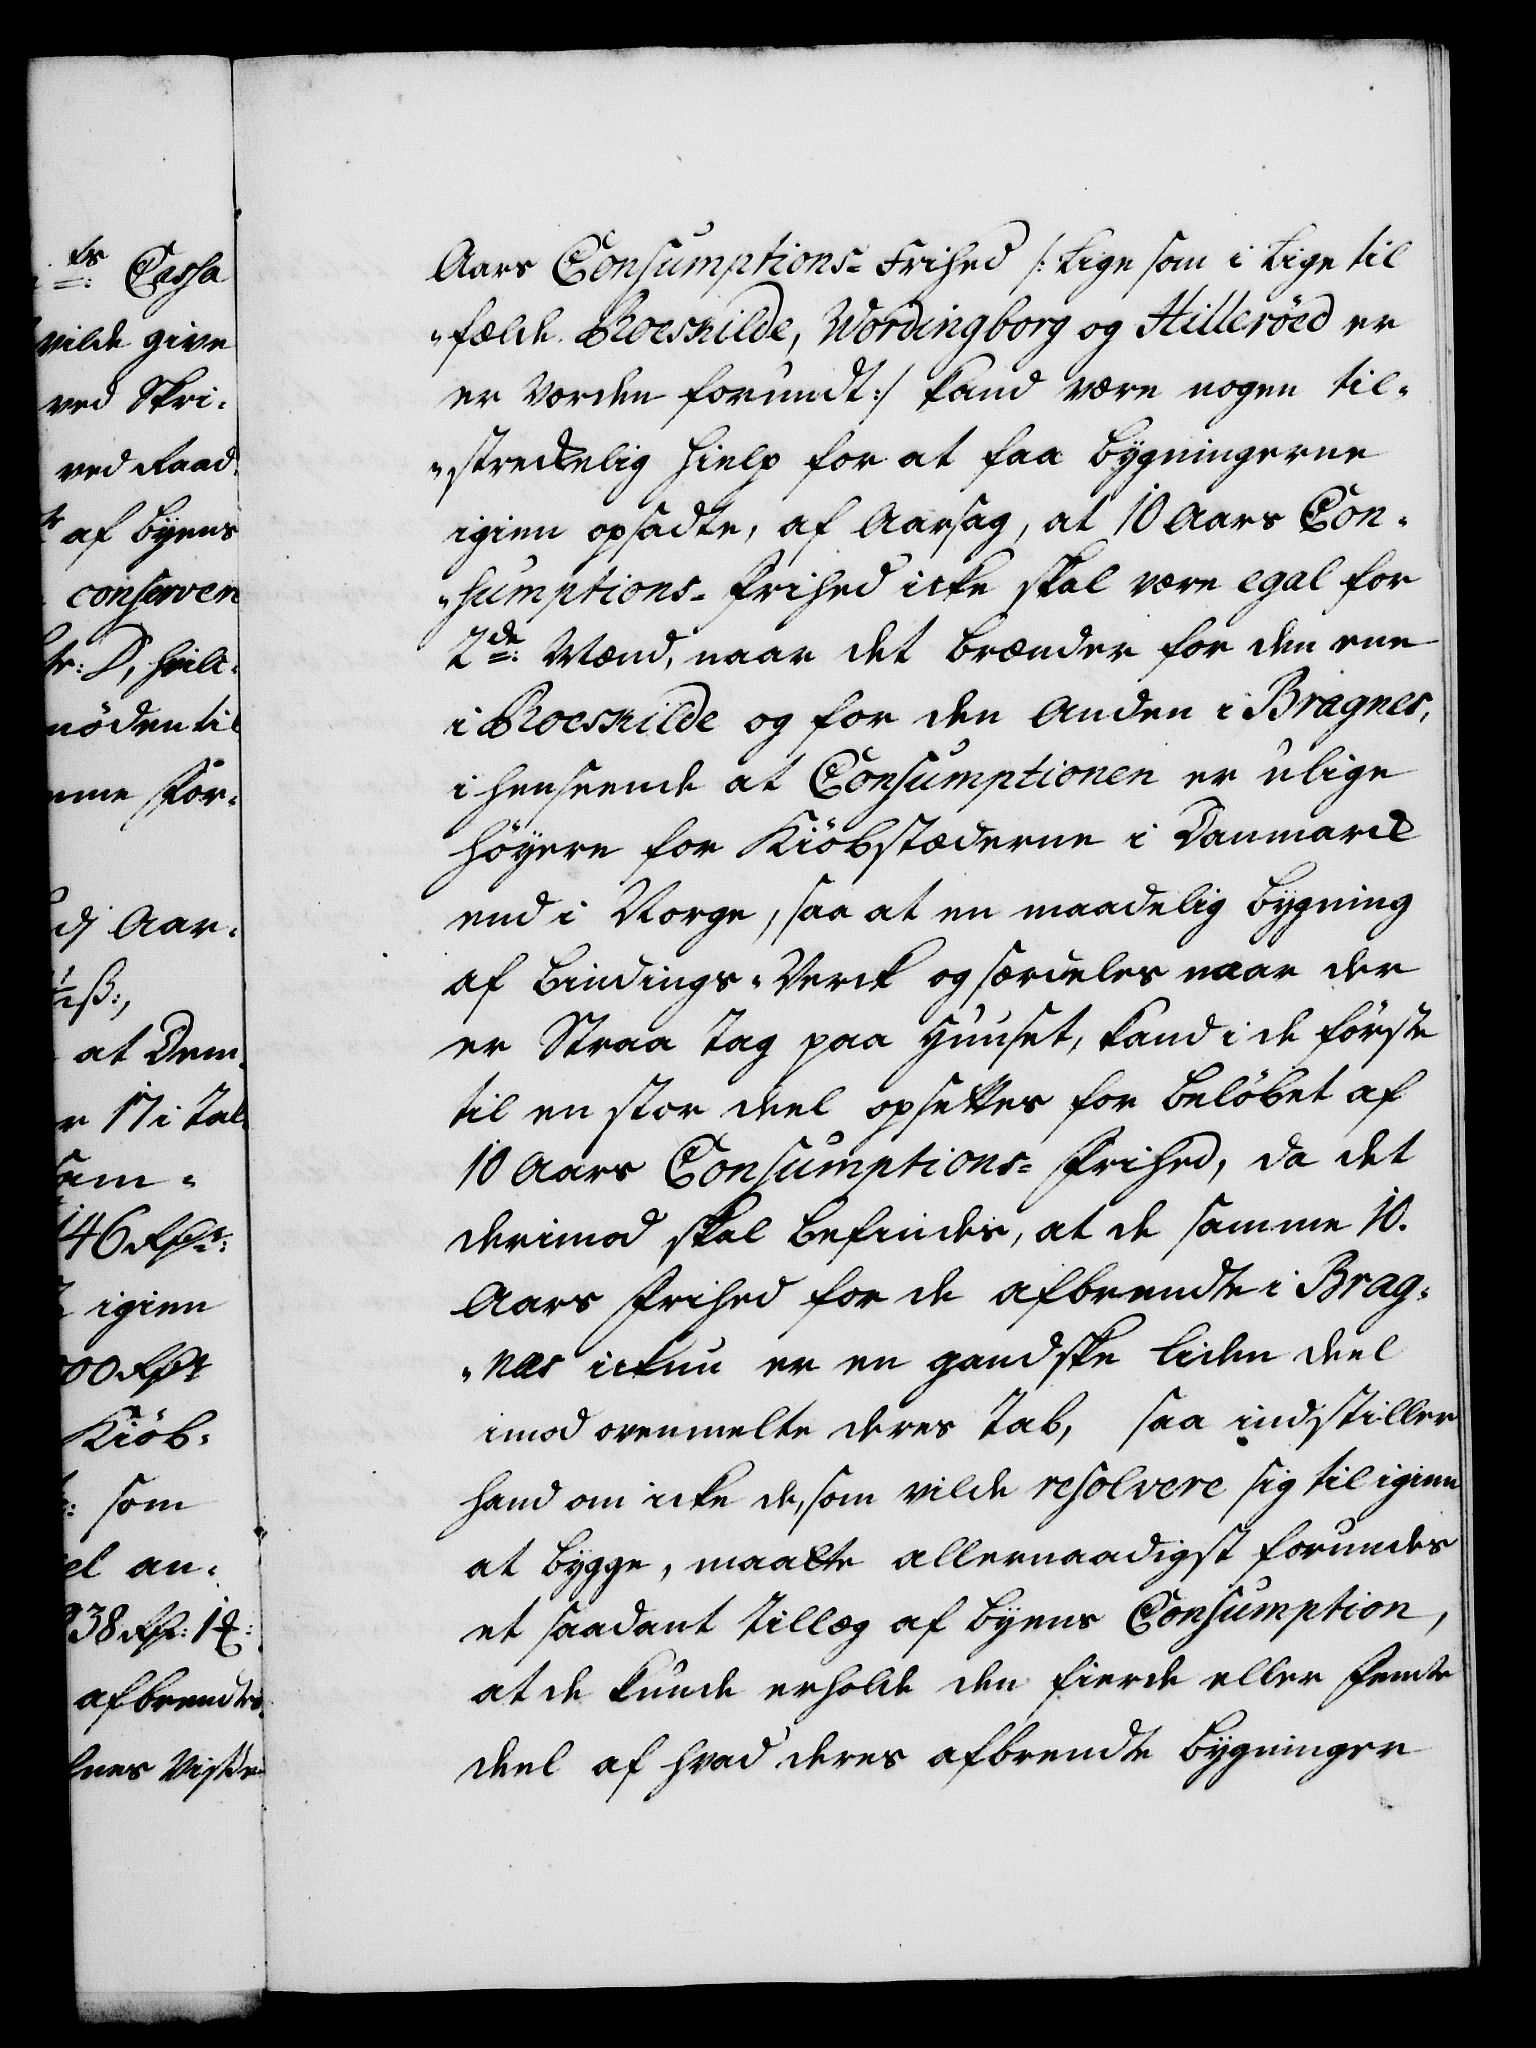 Aars Consumptions= Frihed /: Lige som i Lige til
"fælde Roeskilde, Wordingborg og Hilleröed er
er vorden forundt :/ kand være nogen til=
"streckelig hielp for at faa bÿgningerne
igien opsadte, af Aarsag, at 10 Aars Con=
"sumptions= Friheed icke skal være egal for
2de: Mænd, naar det brænder for den ene
i Roeskilde og for den Anden i Bragnes,
i henseende at Consumptionen er ulige
höÿere for Kiöbstæderne i Danmarck
end i Norge, saa at en maadelig bÿgning
af bindings=Verck og særdeles naar der
er Straa Tag paa Huuset, kand i de förste
til en stor deel opsettes for belöbet af
10 Aars Consumptions= Frihed, da det
derimod skal befindes, at de samme 10.
Aars Frihed for de afbrendte i Brag=
"næs ickun er en gandske liden deel
imod ovenmelte deres Tab, saa indstiller
hand om icke de, som vilde resolvere sig til igien
at bÿgge, maatte allernaadigst forundes
et saadant Tillæg af bÿens Consumption,
at de kunde erholde den fierde eller femte
deel af hvad deres afbrendte bÿgninger
Cassa
vilde give
ved Skri=
ved Raad
af bÿens
conserven
nöden til
Aar=
at Dem
17 i Tal
igien
Kiöb=
som
an=
afbrendtes